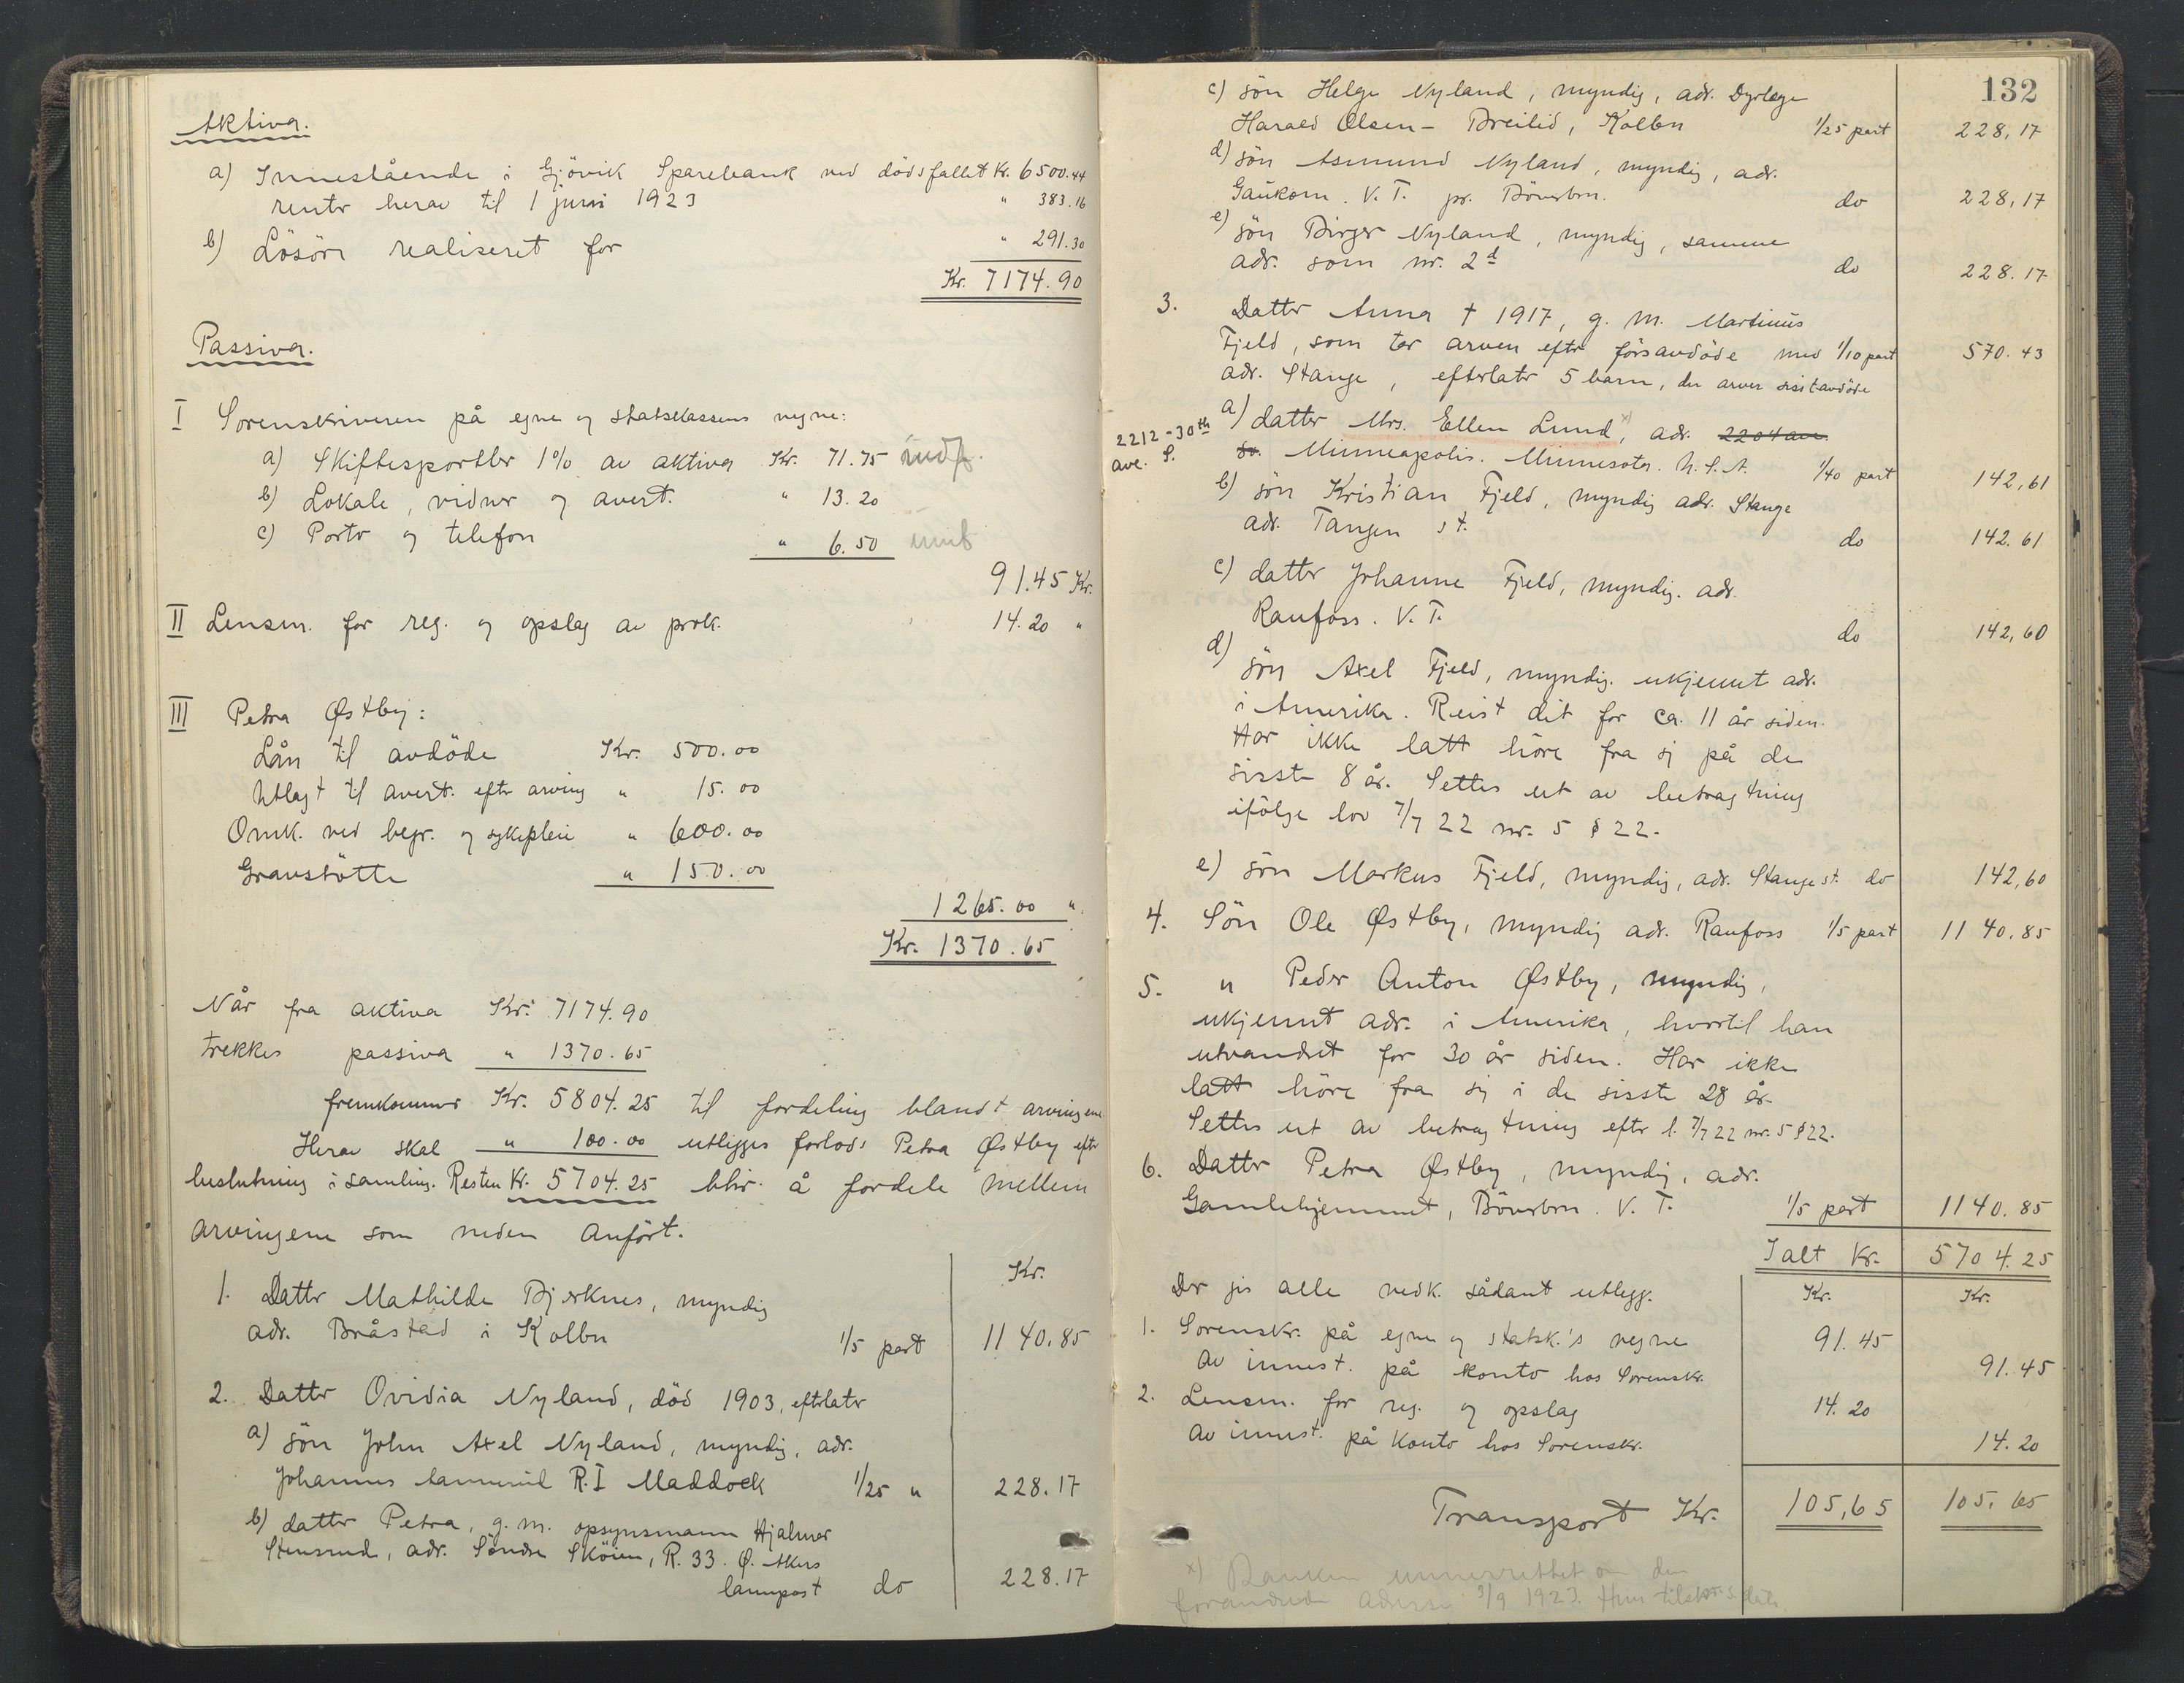 Aktiva.
a) Innestående i Gjövik Sparebank ved dödsfallet Kr. 6500.44
renter herav til 1 juni 1923 " 383.16
b) Lösöre realiseret for " 291.30
Kr. 7174.90
Passiva.
I Sorenskriveren på egne og statskassens vegne:
a) Skiftesportler 1% av aktiva Kr. 71.75 indf.
b) Lokale, vidner og avert. " 13.20
c) Porto og telefon " 6.50
91.45 Kr.
II Lensm. for reg. og opslag av prok. 14.20 "
III Petra Østby:
Lån til avdöde Kr. 500.00
Utlagt til avert. efter arving " 15.00
Omk. ved begr. og sykepleie " 600.00
Gravstötte " 150.00
1265.00 "
Kr. 1370.65
Når fra aktiva Kr. 7174.90
trekkes passiva " 1370.65
fremkommer Kr. 5804.25 til fordeling blandt arvingene
Herav skal " 100.00 utlegges forlods Petra Østby efter
beslutning i samling. Resten Kr. 5704.25 blir å fordele mellem
arvingene som neden anfört.
Kr.
1. Datter Mathilde Bjerknes, myndig
adr. Bråstad i Kolbu 1/5 part 1140.85
2. Datter Ovidia Nyland, död 1903, efterlater
a) sön John Axel Nyland, myndig, adr.
Johannes R. I Maddock 1/25 " 228.17
b) datter Petra, g. m. opsynsmann Hjalmar
Stensrud, adr. Söndre Sköien, R. 33. Ø. Akers
lannpost do 228.17
132
c) sön Helge Nyland, myndig, adr. Dyrlæge
Harald Olsen - Breilid, Kolbu 1/25 part 228,17
d) sön Asmund Nyland, myndig, adr.
Gaukom. V. T. pr. Böverbru. do 228,17
e) sön Birger Nyland, myndig, samme
adr. som nr. 2d do 228.17
3. Datter Anna † 1917, g. m. Martinus
Fjeld, som tar arven efter förstavdöde med 1/10 part 570.43
adr. Stange, efterlater 5 barn, der arver sisstavdöde
a) datter Mrs. Ellen Lund x), adr. 2204 ave.
2212-30th ave. S.
so. Minneapolis. Minnesota. U.S.A. 1/40 part 142,61
b) sön Kristian Fjeld, myndig adr. Stange
adr. Tangen st. do 142.61
c) datter Johanne Fjeld, myndig. adr.
Raufoss. V. T. do 142,60
d) sön Axel Fjeld, myndig. ukjennt adr.
i Amerika. Reist dit for ca. 11 år siden.
Har ikke latt höre fra sig på de
sisste 8 år. Settes ut av betragtning
ifölge lov 7/7 22 nr. 5 § 22.
e) sön Markus Fjeld, myndig, adr. Stange st. do 142,60
4. Sön Ole Østby, myndig adr. Raufoss 1/5 part 1140.85
5. " Peder Anton Østby, myndig,
ukjennt adr. i Amerika, hvortil han
utvandret for 30 år siden. Har ikke
latt höre fra sig i de sisste 28 år.
Settes ut av betragtning efter l. 7/7 22 nr. 5 § 22.
6. Datter Petra Østby, myndig, adr.
Gamlehjemmet, Böverbru. V. T. 1/5 part 1140.85
Ialt Kr. 5704.25
Der gis alle vedk. sådant utlegg. Kr. Kr.
1. Sorenskr. på egne og statsk.'s vegne 91.45
Av innest. på konto hos Sorenskr. 91.45
2. Lensm. for reg. og opslag 14.20
Av innest. på konto hos Sorenskr. 14.20
Transport Kr. 105,65 105,65
x) Banken underrettet om den
forandrede adresse 3/9 1923. Hun tilskr. s. dato